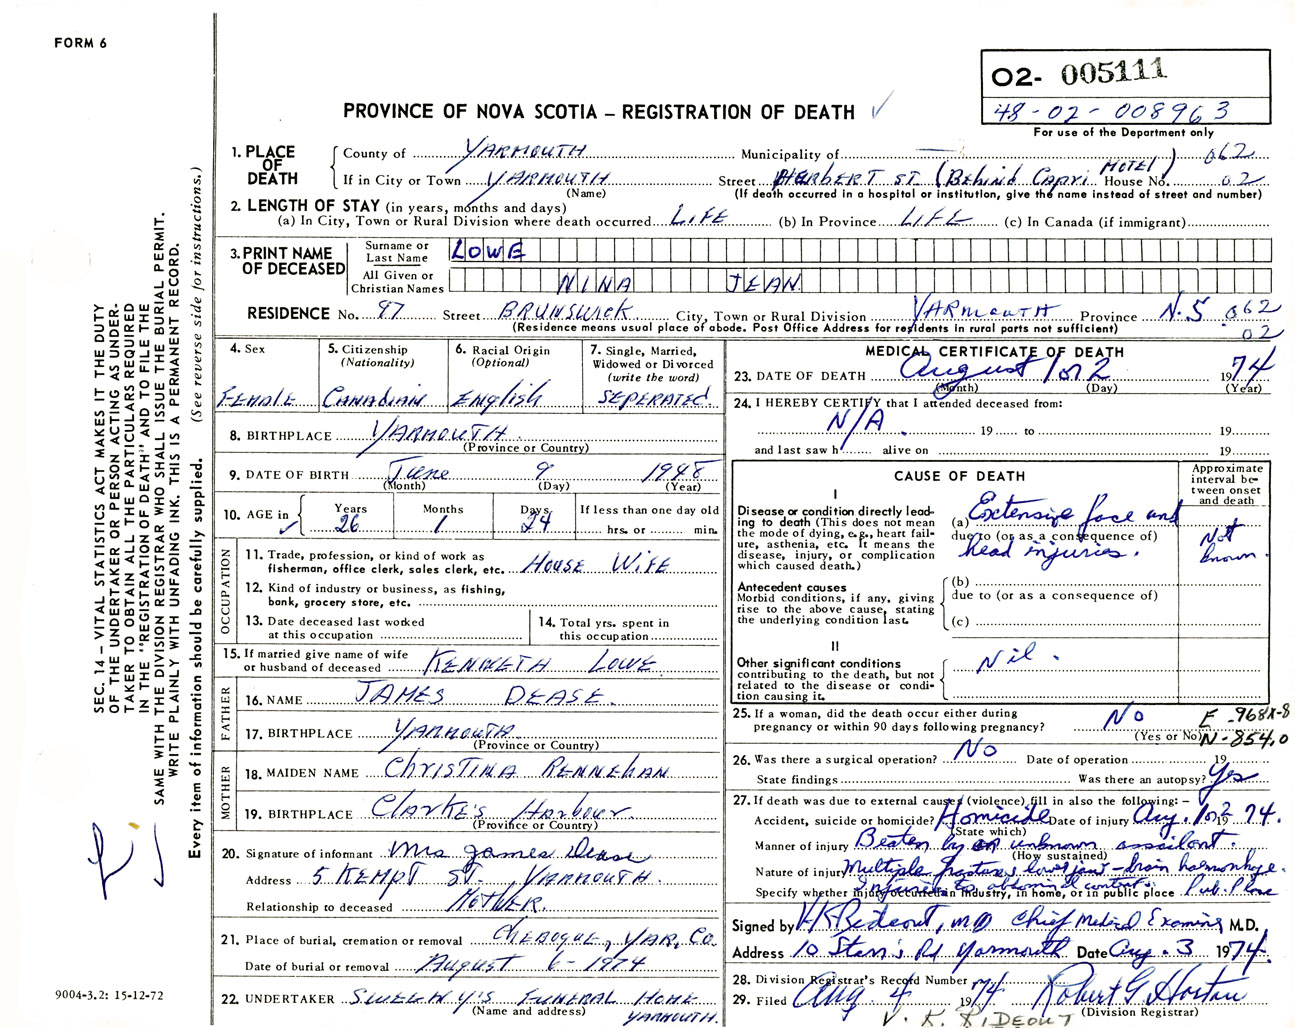 FORM 6
02- 005111
48-02-008963
For use of the Department only
PROVINCE OF NOVA SCOTIA – REGISTRATION OF DEATH ✓
1. PLACE OF DEATH
County of YARMOUTH Municipality of — ) 062
If in City or Town YARMOUTH Street HERBERT ST. (Behind Capri MOTEL) House No. 02
(Name) (If death occurred in a hospital or institution, give the name instead of street and number)
2. LENGTH OF STAY (in years, months and days)
(a) In City, Town or Rural Division where death occurred LIFE (b) In Province LIFE (c) In Canada (if immigrant)
3. PRINT NAME OF DECEASED
Surname or Last Name LOWE
All Given or Christian Names NINA JEAN
RESIDENCE No. 97 Street BRUNSWICK City, Town or Rural Division YARMOUTH Province N.S. 062
(Residence means usual place of abode. Post Office Address for residents in rural parts not sufficient) 02
4. Sex
FEMALE
5. Citizenship (Nationality)
CANADIAN
6. Racial Origin (Optional)
English
7. Single, Married, Widowed or Divorced (write the word)
SEPERATED.
8. BIRTHPLACE YARMOUTH.
(Province or Country)
9. DATE OF BIRTH June 9 1948
(Month) (Day) (Year)
10. AGE in ✓
Years 26
Months 1
Days 24
If less than one day old
hrs. or min.
OCCUPATION
11. Trade, profession, or kind of work as fisherman, office clerk, sales clerk, etc. HOUSE WIFE
12. Kind of industry or business, as fishing, bank, grocery store, etc.
13. Date deceased last worked at this occupation
14. Total yrs. spent in this occupation
15. If married give name of wife or husband of deceased KENNETH LOWE
FATHER
16. NAME JAMES DEASE.
17. BIRTHPLACE YARMOUTH
(Province or Country)
MOTHER
18. MAIDEN NAME CHRISTINA RENNEHAN
19. BIRTHPLACE CLARKE'S Harbour
(Province or Country)
20. Signature of informant Mrs James Dease
Address 5 KEMPT ST. YARMOUTH.
Relationship to deceased MOTHER.
21. Place of burial, cremation or removal CHEBOGUE, YAR. CO.
Date of burial or removal August 6 - 1974
22. UNDERTAKER SWEENY'S FUNERAL HOME
(Name and address) YARMOUTH.
MEDICAL CERTIFICATE OF DEATH
23. DATE OF DEATH August 1 or 2 1974
(Month) (Day) (Year)
24. I HEREBY CERTIFY that I attended deceased from:
N/A 19 to 19
and last saw h alive on 19
CAUSE OF DEATH
Approximate interval between onset and death
I
Disease or condition directly leading to death (This does not mean the mode of dying, e.g., heart failure, asthenia, etc. It means the disease, injury, or complication which caused death.)
(a) Extensive face and
due to (or as a consequence of)
head injuries.
Not known.
Antecedent causes
Morbid conditions, if any, giving rise to the above cause, stating the underlying condition last.
(b)
due to (or as a consequence of)
(c)
II
Other significant conditions contributing to the death, but not related to the disease or condition causing it.
Nil.
25. If a woman, did the death occur either during pregnancy or within 90 days following pregnancy? No
(Yes or No)
E-968X-8
N-854.0
26. Was there a surgical operation? No Date of operation 19
State findings Was there an autopsy? Yes
27. If death was due to external causes (violence) fill in also the following: –
Accident, suicide or homicide? Homicide Date of injury Aug. 1 or 2 1974.
(State which)
Manner of injury Beaten by an unknown assailant.
(How sustained)
Nature of injury Multiple fractures lower jaw - brain haemorrhage.
Injuries to abdominal contents.
Specify whether injury occurred in industry, in home, or in public place Pub. Place
Signed by V K Rideout, MD Chief Medical Examiner M.D.
Address 10 Starr's Rd Yarmouth Date Aug. 3 1974.
28. Division Registrar's Record Number
29. Filed Aug 4 1974 Robert G. Horton
(Division Registrar)
V. K. RIDEOUT
SEC. 14 – VITAL STATISTICS ACT MAKES IT THE DUTY
OF THE UNDERTAKER OR PERSON ACTING AS UNDER-
TAKER TO OBTAIN ALL THE PARTICULARS REQUIRED
IN THE "REGISTRATION OF DEATH" AND TO FILE THE
SAME WITH THE DIVISION REGISTRAR WHO SHALL ISSUE THE BURIAL PERMIT.
WRITE PLAINLY WITH UNFADING INK. THIS IS A PERMANENT RECORD.
Every item of information should be carefully supplied. (See reverse side for instructions.)
9004-3.2: 15-12-72